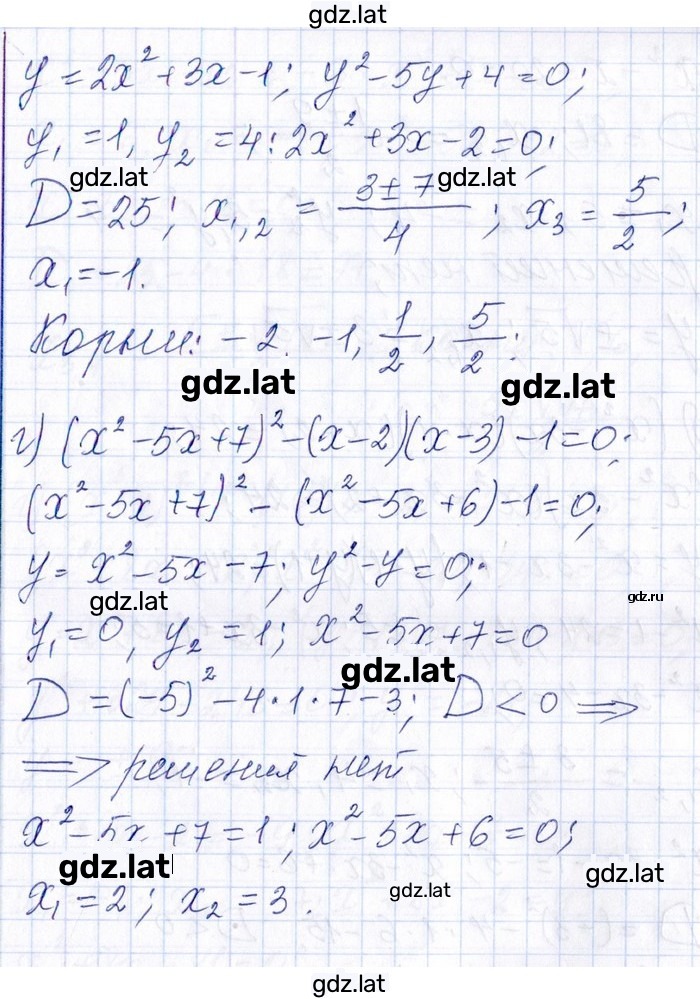 gdz.lat
y = 2x² + 3x - 1; y² - 5y + 4 = 0;
y₁ = 1, y₂ = 4: 2x² + 3x - 2 = 0;
gdz.lat gdz.lat
D = 25; x₁,₂ = (3 ± 7)/4; x₃ = 5/2;
x₁ = -1.
Корни: -2. -1, 1/2, 5/2;
gdz.lat gdz.lat
г) (x² - 5x + 7)² - (x - 2)(x - 3) - 1 = 0;
(x² - 5x + 7)² - (x² - 5x + 6) - 1 = 0;
y = x² - 5x - 7; y² - y = 0;
gdz.lat gdz.ru
y₁ = 0, y₂ = 1; x² - 5x + 7 = 0
gdz.lat
D = (-5)² - 4·1·7 - 3; D < 0 ⟹
⟹ решений нет
x² - 5x + 7 = 1; x² - 5x + 6 = 0;
gdz.lat gdz.lat gdz.lat
x₁ = 2; x₂ = 3.
gdz.lat